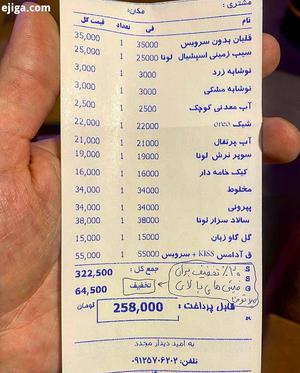 ejiga.com
مشتری: مکان:
نام فی تعداد قیمت کل
قلیان بدون سرویس 35000 1 35,000
سیب زمینی اسپشیال لونا 25000 1 25,000
نوشابه زرد 3000 1 3,000
نوشابه مشکی 3000 1 3,000
آب معدنی کوچک 2500 1 2,500
شیک oreo 22000 1 22,000
آب پرتقال 21000 1 21,000
سوپر نرش لونا 19000 1 19,000
کیک خامه دار 16000 1 16,000
مخلوط 34000 1 34,000
پپرونی 34000 1 34,000
سالاد سزار لونا 38000 1 38,000
گل گاو زبان 15000 1 15,000
ق آدامس KISS + سرویس 55000 1 55,000
جمع کل: 322,500
٪۲۰ تخفیف برای
تخفیف 64,500
های بالای
قابل پرداخت: 258,000 تومان
به امید دیدار مجدد
تلفن: ۰۹۱۲۵۷۰۶۲۰۲